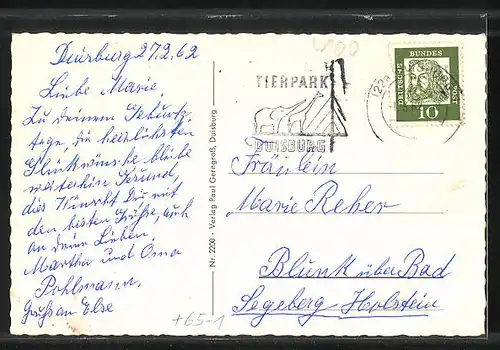 Duisburg 27.2.62
Liebe Marie.
Zu Deinem Geburts-
tage, die herzlichsten
Glückwünsche bleibe
weiterhin Gesund,
dies Wünscht Dir mit
den besten Grüße, auch
an deine Lieben,
Martha und Oma
Pohlmann.
Gruß an Else
Nr. 2200 - Verlag Paul Gerngroß, Duisburg
+65-1
TIERPARK
DUISBURG
DEUTSCHE
BUNDES
POST
10
Fräulein
Marie Reher
Blunk über Bad
Segeberg-Holstein